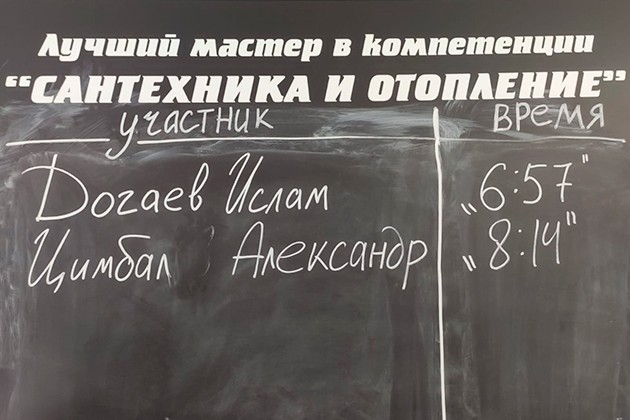 Лучший мастер в компетенции
“САНТЕХНИКА И ОТОПЛЕНИЕ”
участник время
Догаев Ислам „6:57”
Цимбал Александр „8:14”